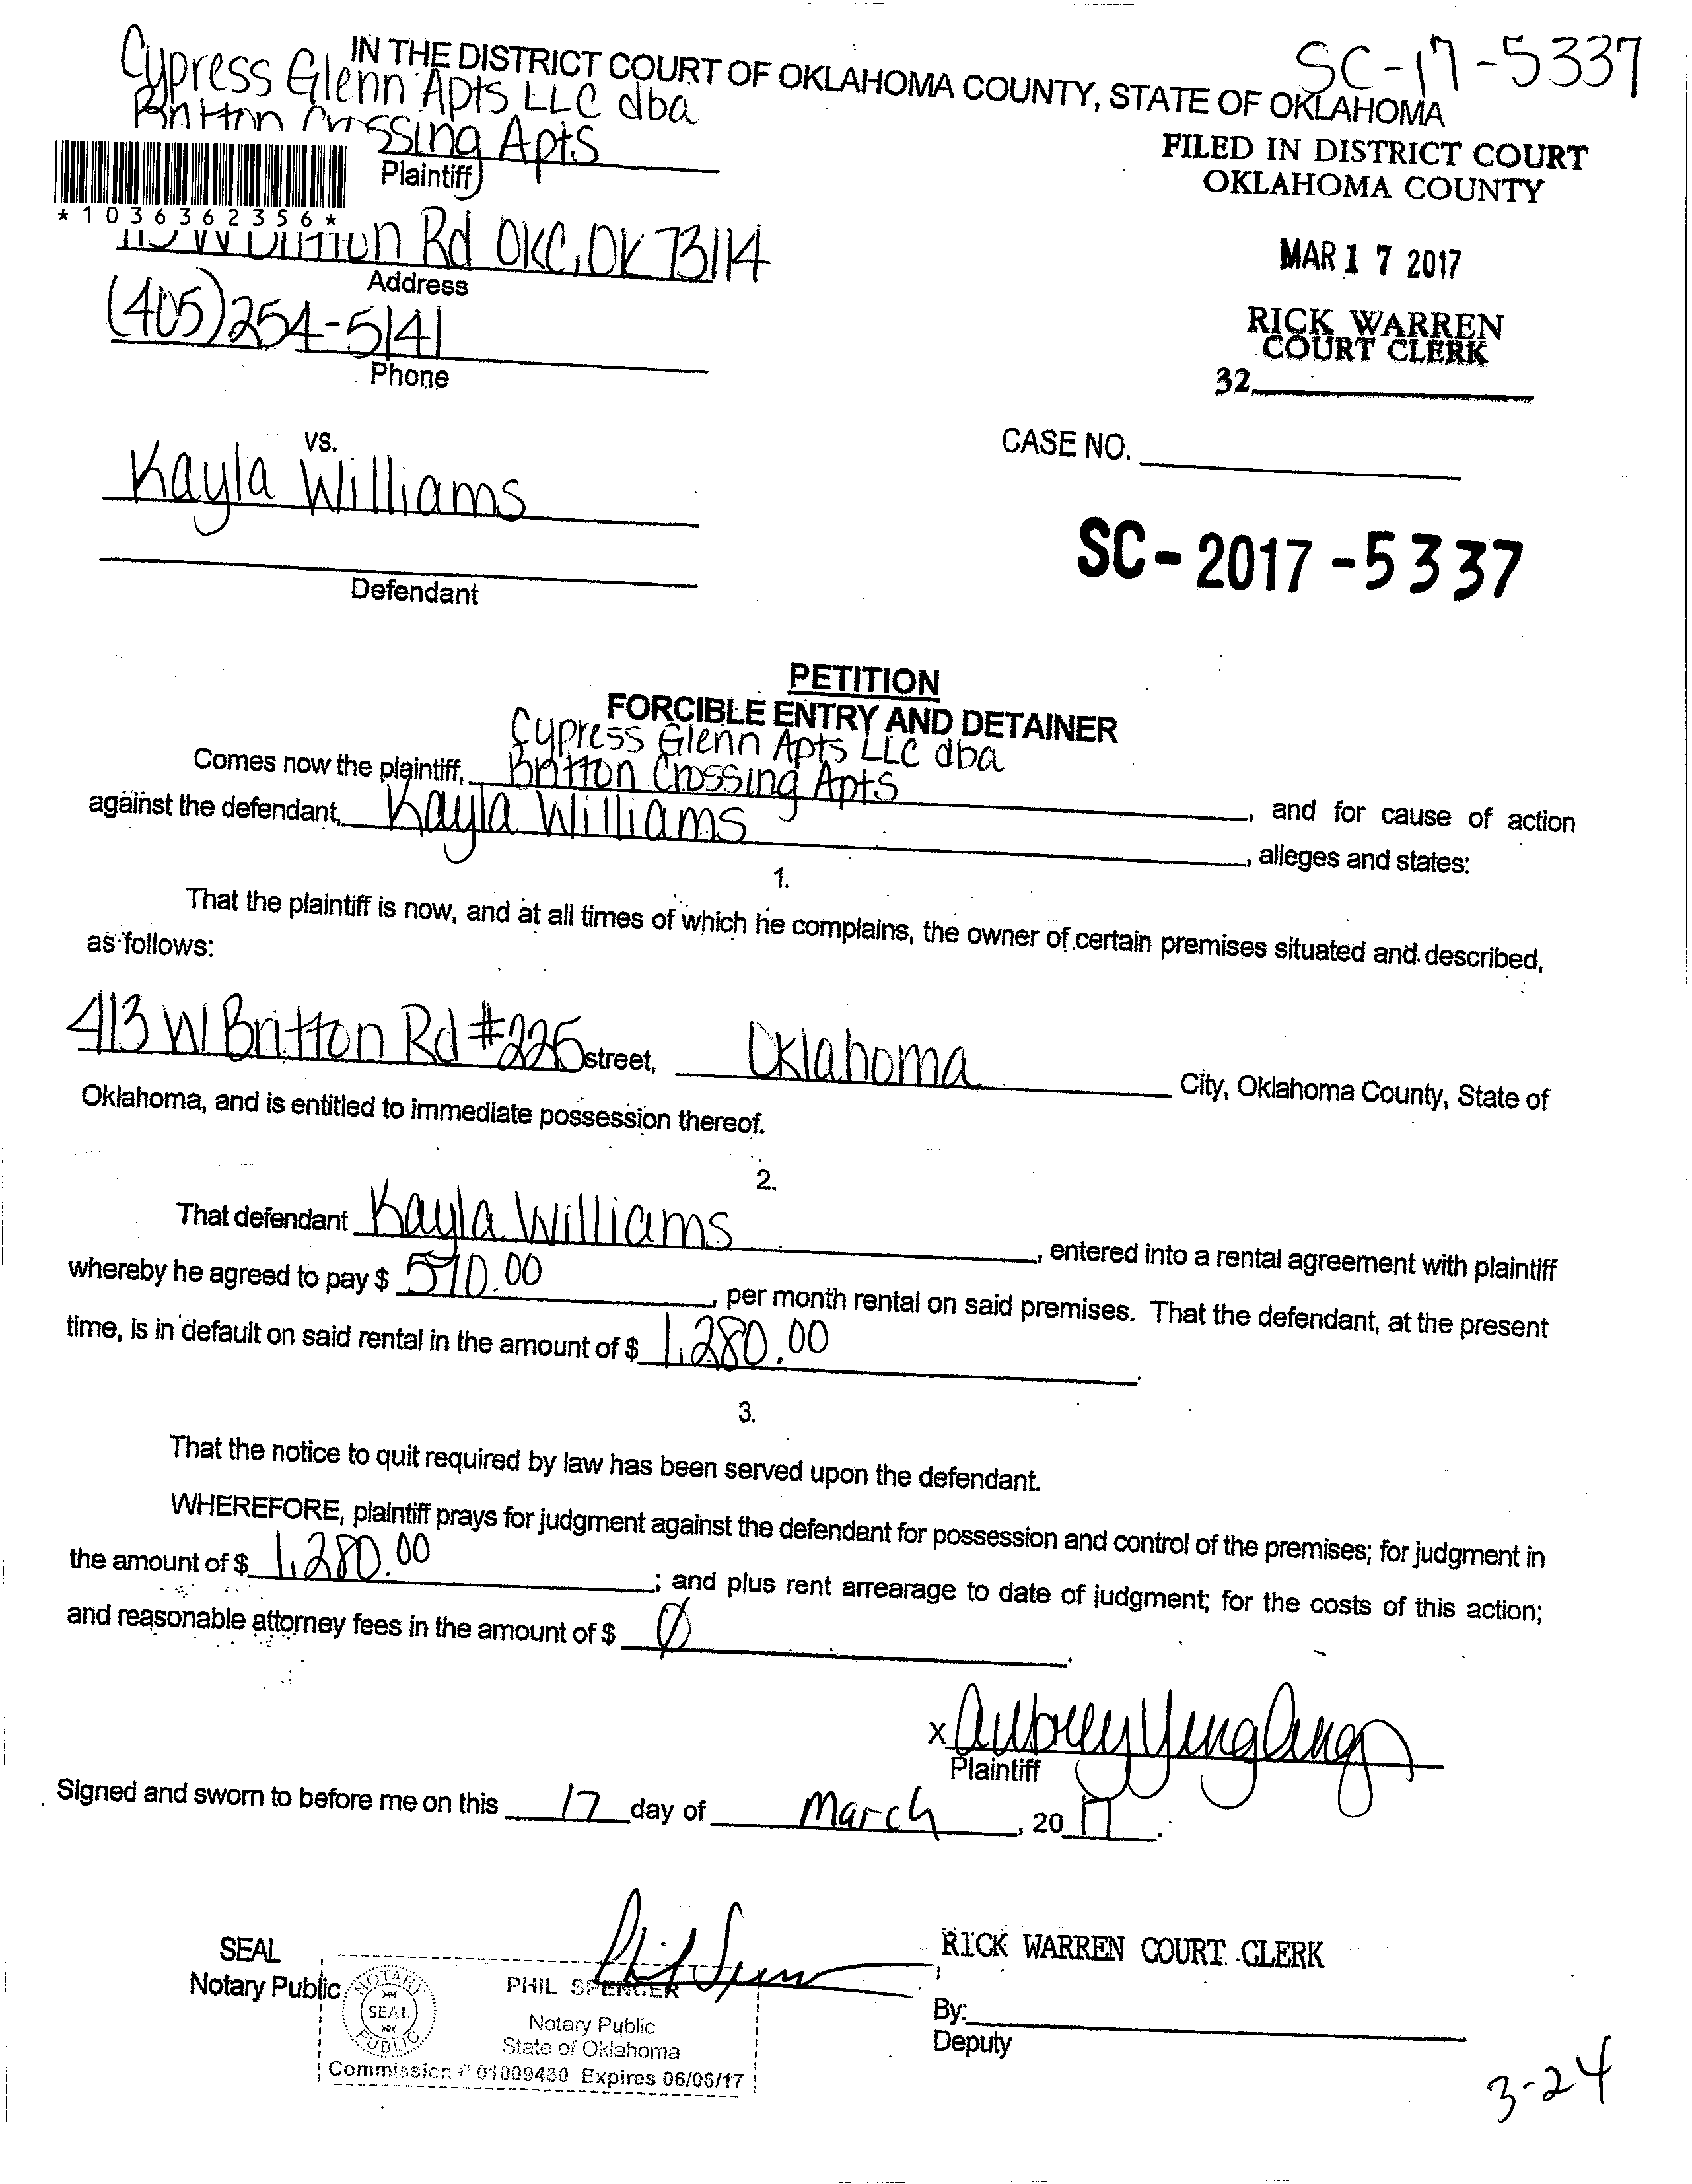 SC-17-5337
IN THE DISTRICT COURT OF OKLAHOMA COUNTY, STATE OF OKLAHOMA
Cypress Glenn Apts LLC dba
Britton Crossing Apts
Plaintiff
FILED IN DISTRICT COURT
OKLAHOMA COUNTY
*1036362356*
W Britton Rd OKC, OK 73114
Address
MAR 17 2017
(405)254-5141
Phone
RICK WARREN
COURT CLERK
32
vs.
CASE NO.
Kayla Williams
Defendant
SC-2017-5337
PETITION
FORCIBLE ENTRY AND DETAINER
Cypress Glenn Apts LLC dba
Comes now the plaintiff, Britton Crossing Apts, and for cause of action
against the defendant, Kayla Williams, alleges and states:
1.
That the plaintiff is now, and at all times of which he complains, the owner of certain premises situated and described,
as follows:
413 W Britton Rd #226 street, Oklahoma City, Oklahoma County, State of
Oklahoma, and is entitled to immediate possession thereof.
2.
That defendant Kayla Williams, entered into a rental agreement with plaintiff
whereby he agreed to pay $ 570.00, per month rental on said premises. That the defendant, at the present
time, is in default on said rental in the amount of $ 1,280.00.
3.
That the notice to quit required by law has been served upon the defendant.
WHEREFORE, plaintiff prays for judgment against the defendant for possession and control of the premises; for judgment in
the amount of $ 1,280.00; and plus rent arrearage to date of judgment; for the costs of this action;
and reasonable attorney fees in the amount of $ Ø.
x Aubrey
Plaintiff
Signed and sworn to before me on this 17 day of March, 2017.
SEAL
Notary Public
NOTARY PUBLIC
SEAL
PHIL SPENCER
Notary Public
State of Oklahoma
Commission # 01009480 Expires 06/06/17
RICK WARREN COURT CLERK
By:
Deputy
3-24